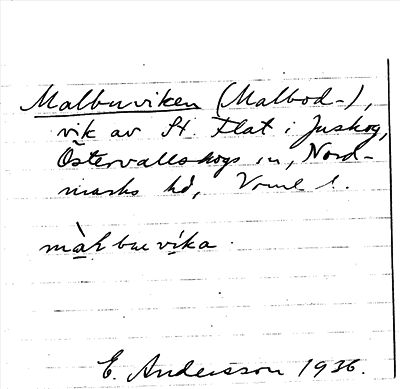 Malbuviken (Malbod-),
vik av St. Flat i Juskog,
Östervallskogs sn, Nord-
marks hd, Vrml l.
màLbuvíka.
E. Andersson 1936.